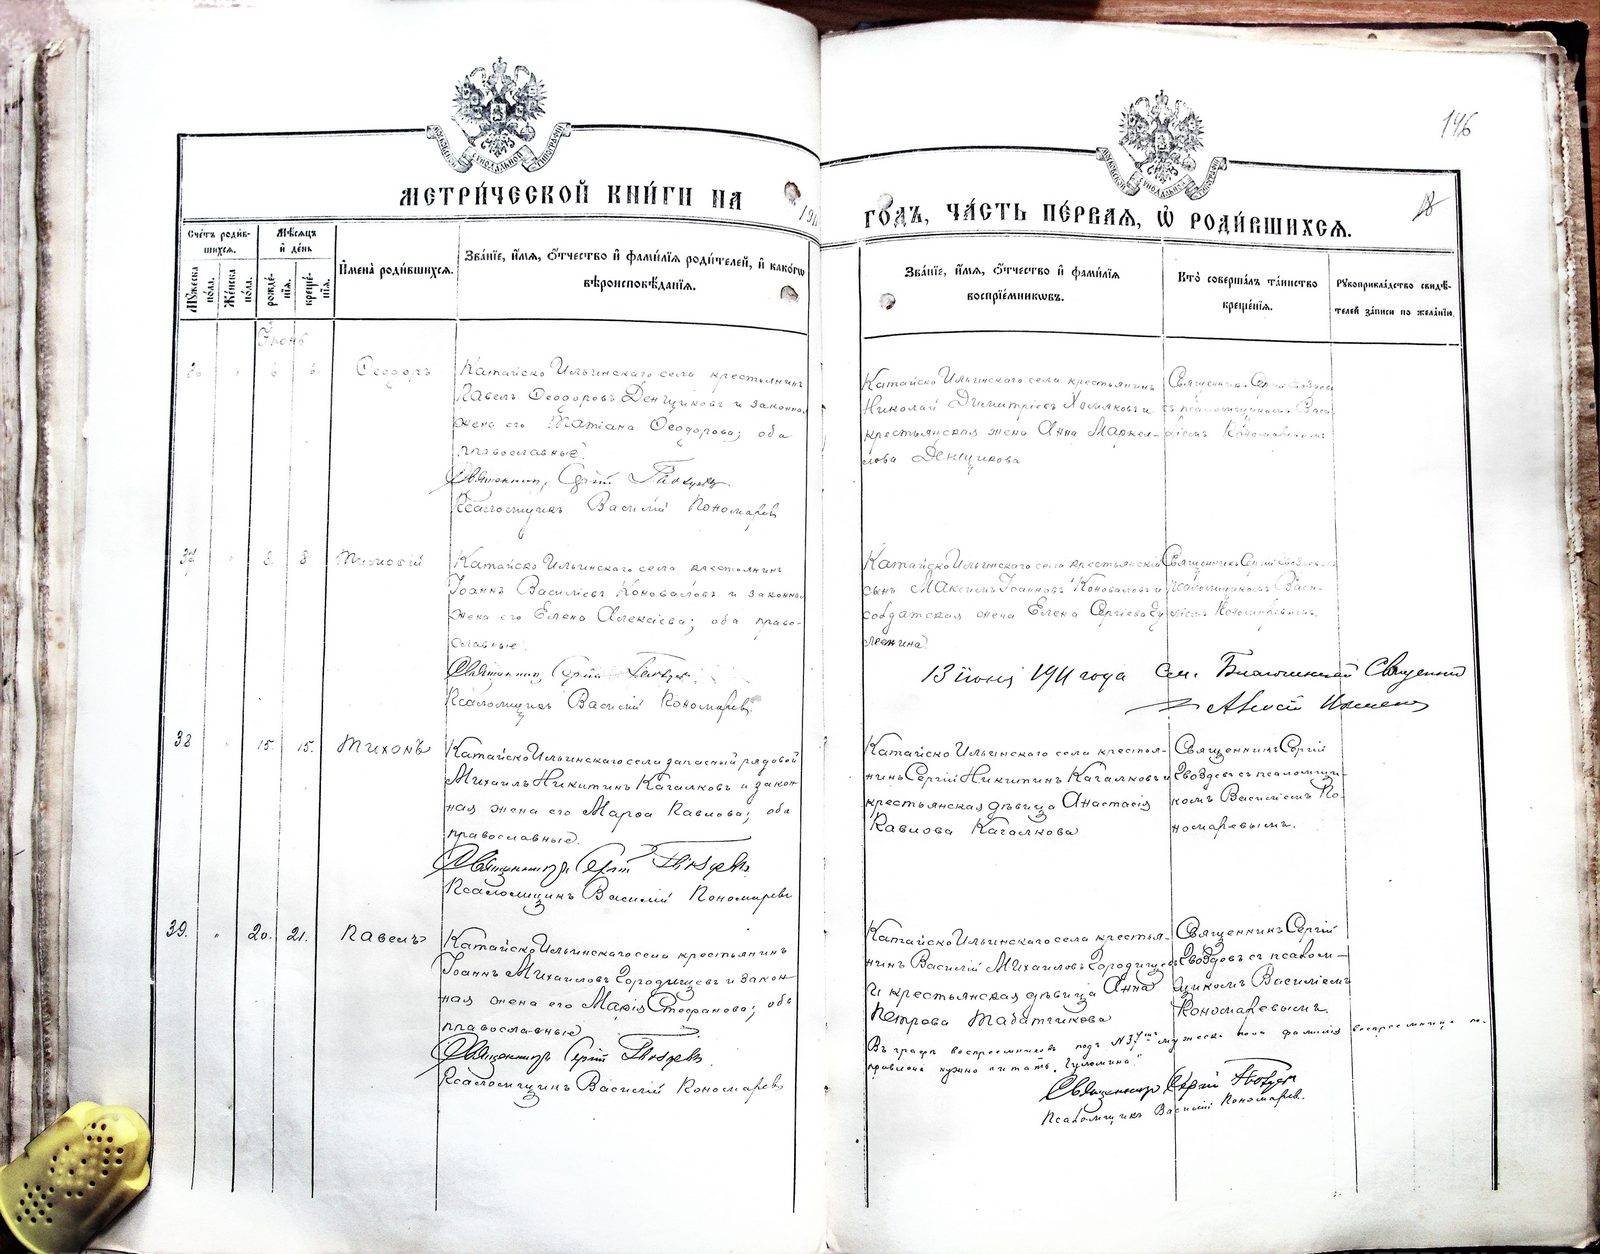 146
18
МЕТРИ́ЧЕСКОЙ КНИ́ГИ НА 1911
ГО́ДЪ, ЧА́СТЬ ПЕ́РВАЯ, Ѡ РОДИ́ВШИХСЯ.
Сче́тъ роди́в-
шихся.
Му́жеска по́ла.
Же́нска по́ла.
Мѣ́сяцъ и де́нь
рожде́-
нія.
креще́-
нія.
И́мена роди́вшихся.
Зва́ніе, и́мя, о́тчество и фами́лія роди́телей, и како́гѡ
вѣроисповѣ́данія.
Зва́ніе, и́мя, о́тчество и фами́лія
воспріе́мникѡвъ.
Кто̀ соверша́лъ та́инство
креще́нія.
Рукоприкла́дство свидѣ́-
телей за́писи по жела́нію.
Іюнь
6 6
Ѳеодоръ
Катайско Ильинскаго села крестьянинъ
Павелъ Ѳеодоровъ Денщиковъ и законная
жена его Татіана Ѳеодорова; оба
православные.
Священникъ Сергій Гвоздевъ
Псаломщикъ Василій Пономаревъ
Катайско Ильинскаго села крестьянинъ
Николай Димитріевъ Хомяковъ и
крестьянская жена Анна Маркел-
лова Денщикова
Священникъ Сергій Гвоздевъ
съ псаломщикомъ Васи-
ліемъ Пономаревымъ
37 " 8. 8.
Катайско Ильинскаго села крестьянинъ
Іоаннъ Василіевъ Коноваловъ и законная
жена его Елена Алексіева; оба право-
славные.
Священникъ Сергій Гвоздевъ
Псаломщикъ Василій Пономаревъ.
Катайско Ильинскаго села крестьянскій
сынъ Максимъ Іоанновъ Коноваловъ и
солдатская жена Елена Сергіева
Священникъ Сергій Гвоздевъ съ
псаломщикомъ Васи-
ліемъ Пономаревымъ.
13 іюня 1911 года см. Благочинный Священникъ
38 " 15. 15.
Тихонъ
Катайско Ильинскаго села запасный рядовой
Михаилъ Никитинъ Кагалковъ и закон-
ная жена его Марѳа Павлова; оба
православные.
Священникъ Сергій Гвоздевъ
Псаломщикъ Василій Пономаревъ
Катайско Ильинскаго села крестья-
нинъ Сергій Никитинъ Кагалковъ и
крестьянская дѣвица Анастасія
Павлова Кагалкова
Священникъ Сергій
Гвоздевъ съ псаломщи-
комъ Василіемъ По-
номаревымъ.
39. " 20. 21.
Павелъ
Катайско Ильинскаго села крестьянинъ
Іоаннъ Михаиловъ Городищевъ и закон-
ная жена его Марія Стефанова; оба
православные
Священникъ Сергій Гвоздевъ
Псаломщикъ Василій Пономаревъ
Катайско Ильинскаго села крестья-
нинъ Василій Михаиловъ Городищевъ
и крестьянская дѣвица Анна
Петрова Табатчикова
Священникъ Сергій
Гвоздевъ съ псалом-
щикомъ Василіемъ
Пономаревымъ.
Въ графѣ воспріемниковъ подъ №37мъ мужеска пола фамилія воспріемницы по-
правлена нужно читать
Священникъ Сергій Гвоздевъ
Псаломщикъ Василій Пономаревъ.